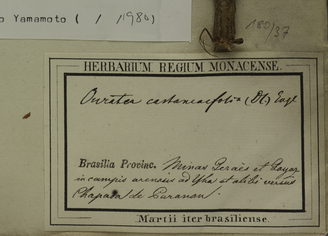 o Yamamoto ( / /1980)
180/37
HERBARIUM REGIUM MONACENSE.
Ouratea castaneaefolia (DC) Engl
Brasilia Provinc. Minas Geraës et Goyaz
in campis arenosis ad et alibi versus
Chapada de Paranan.
Martii iter brasiliense.